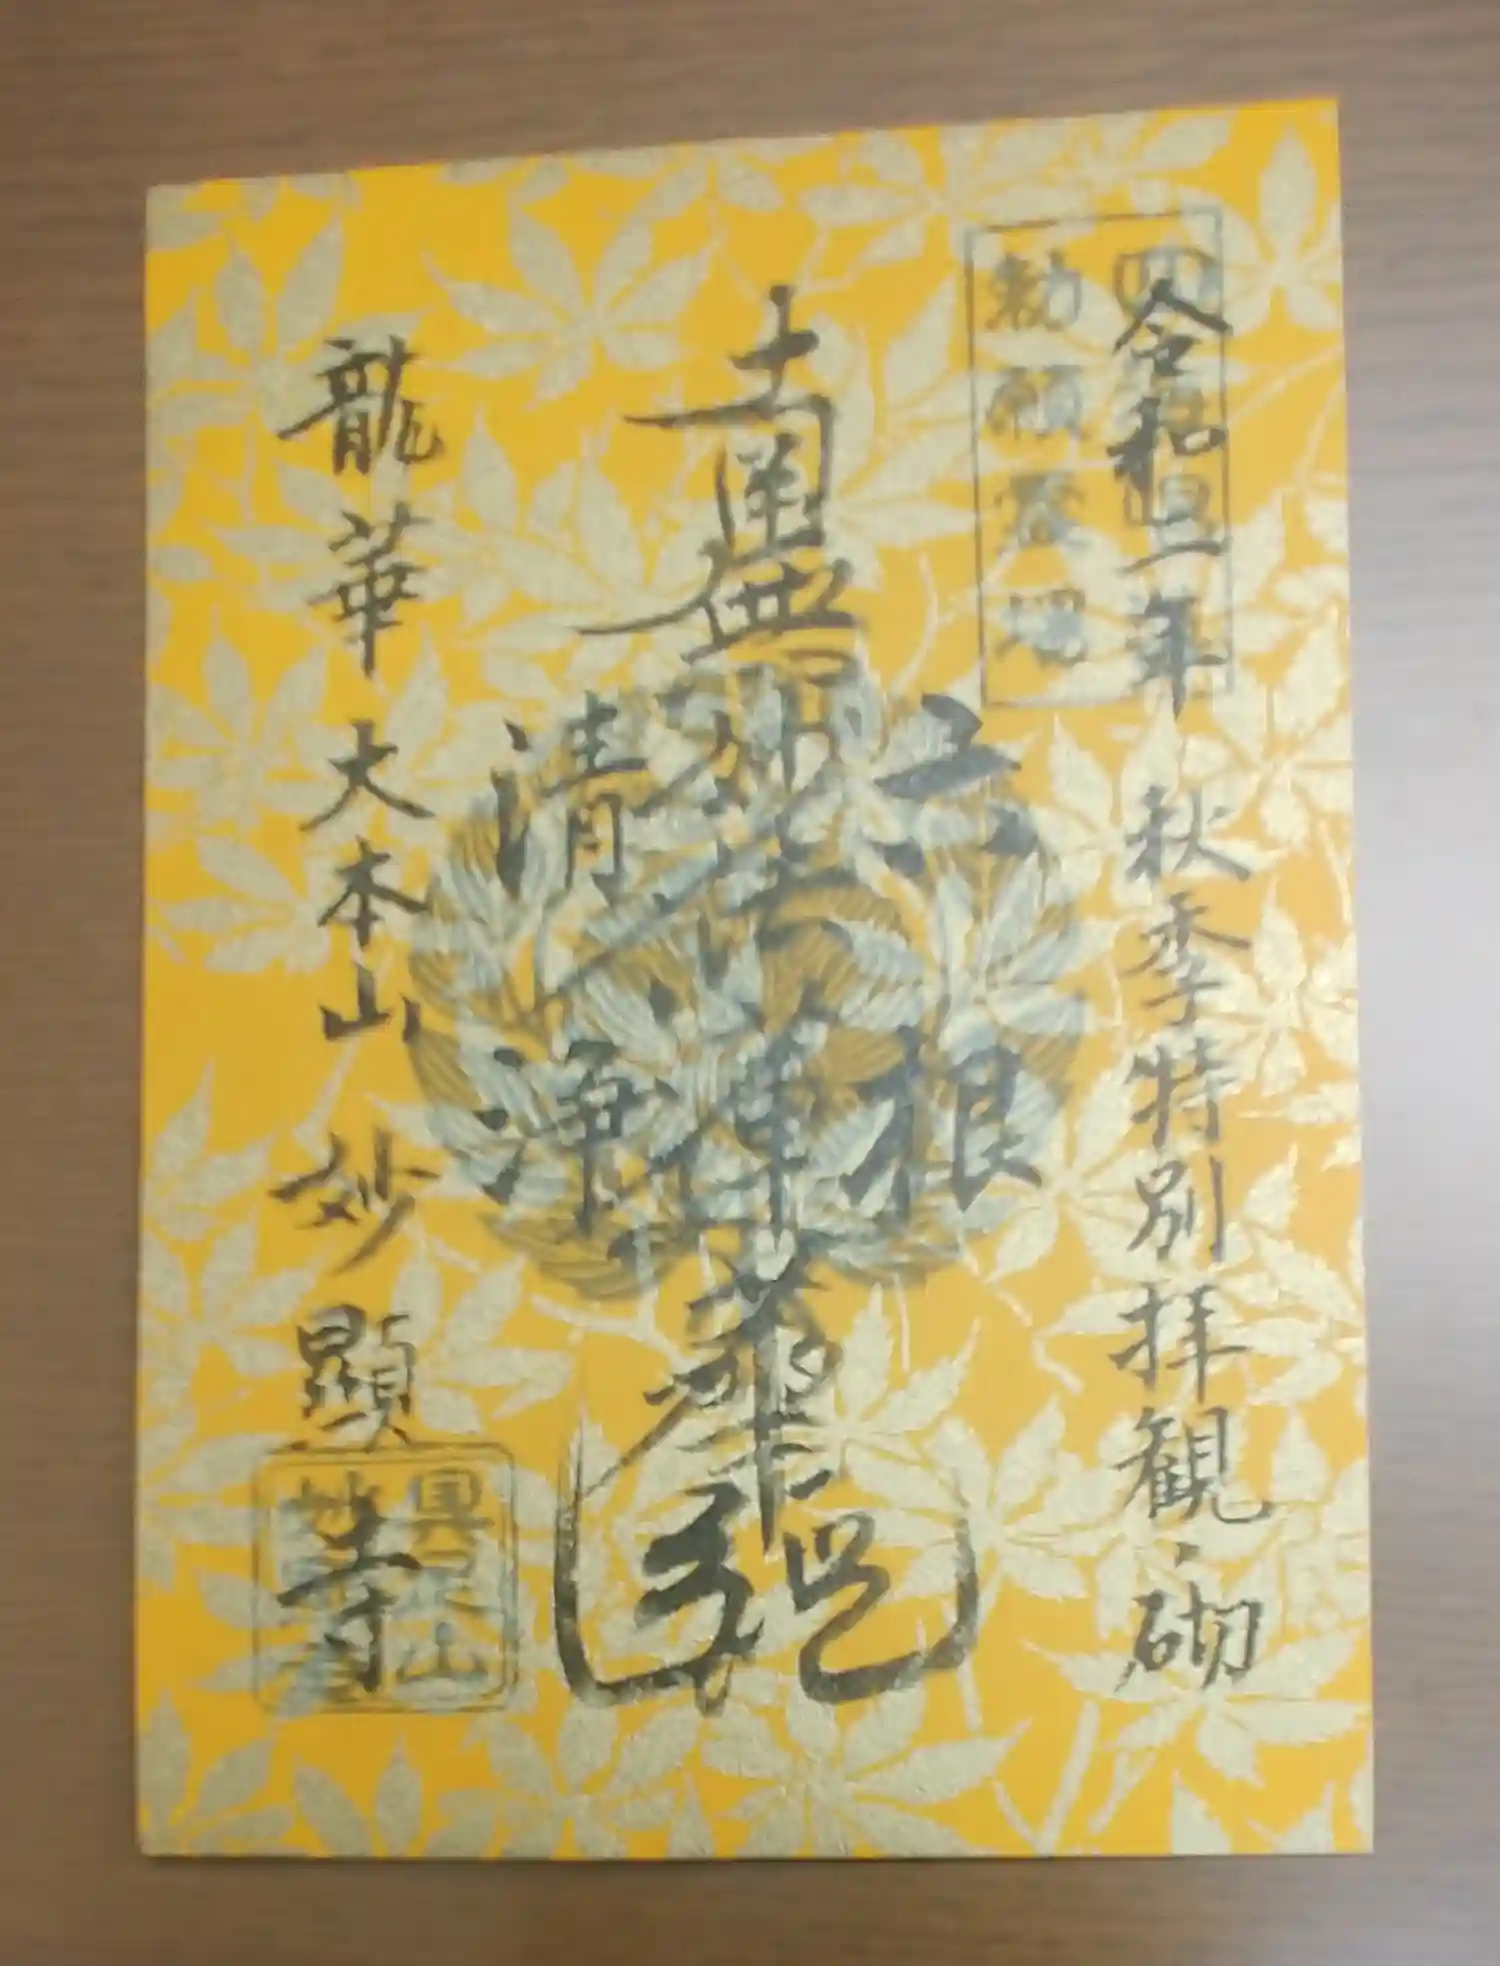 令和二年 秋季特別拝観之砌
四海唱導
勅願霊場
六根
南無妙法蓮華経
清浄
龍華 大本山 妙顕寺
具足山